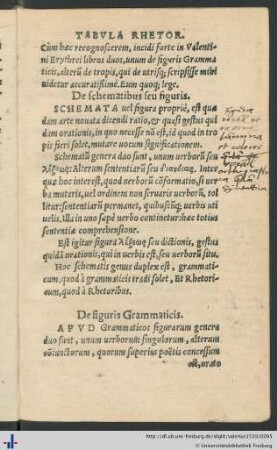 TABVLA RHETOR.
Cùm hæc recognoscerem, incidi forte in Valenti-
ni Erythrei libros duos, unum de figuris Gramma
ticis, alterũ de tropis, qui de utrisq; scripsisse mihi
uidetur accuratissimè. Eum quoq; lege.
De schematibus seu figuris.
SCHEMATA uel figura propriè, est quæ
dam arte nouata dicendi ratio, et quasi gestus qui
dam orationis, in quo necesse nõ est, id quod in tro
pis fieri solet, mutare uocum significationem.
Schematũ genera duo sunt, unum uerborũ seu
λέξεως: Alterum sententiarũ seu διανοίας. Inter
quæ hoc interest, quod uerborũ cõformatio, si uer
ba mutaris, uel ordinem non seruaris uerborũ, tol
litur: sententiarũ permanet, quibuscũq; uerbis uti
uelis. Illa in uno sæpè uerbo continetur: hæc totius
sententiæ comprehensione.
Est igitur figura λέξεως seu dictionis, gestus
quidã orationis, qui in uerbis est, seu uerborũ situ.
Hoc schematis genus duplex est, grammati-
cum, quod à grammaticis tradi solet, Et Rhetori-
cum, quod à Rhetoribus.
De figuris Grammaticis.
APVD Grammaticos figurarum genera
duo sunt, unum uerborum singulorum, alterum
cõiunctorum, quorum superius poëtis concessum
est, orato
http://dl.ub.uni-freiburg.de/diglit/valerius1539/0095
© Universitätsbibliothek Freiburg